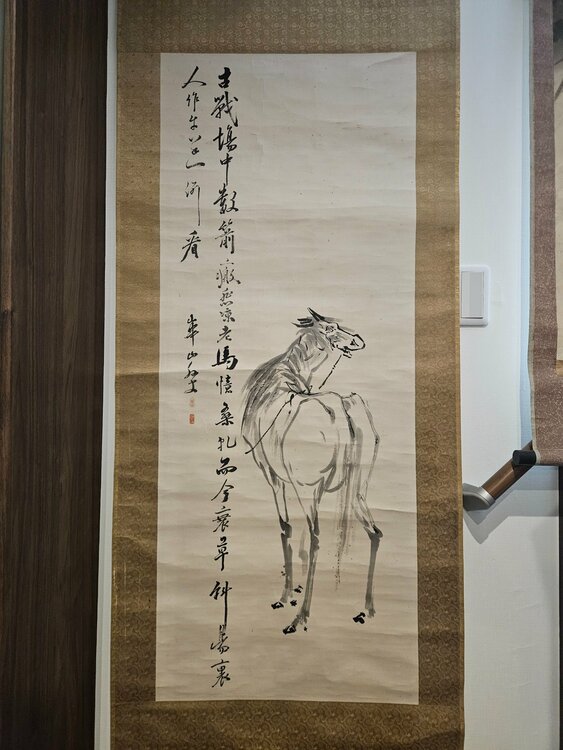 古戰場中數箭瘢悲凉老馬憶桑乾而今衰草斜陽裏
人作牛羊一例看
華山外史